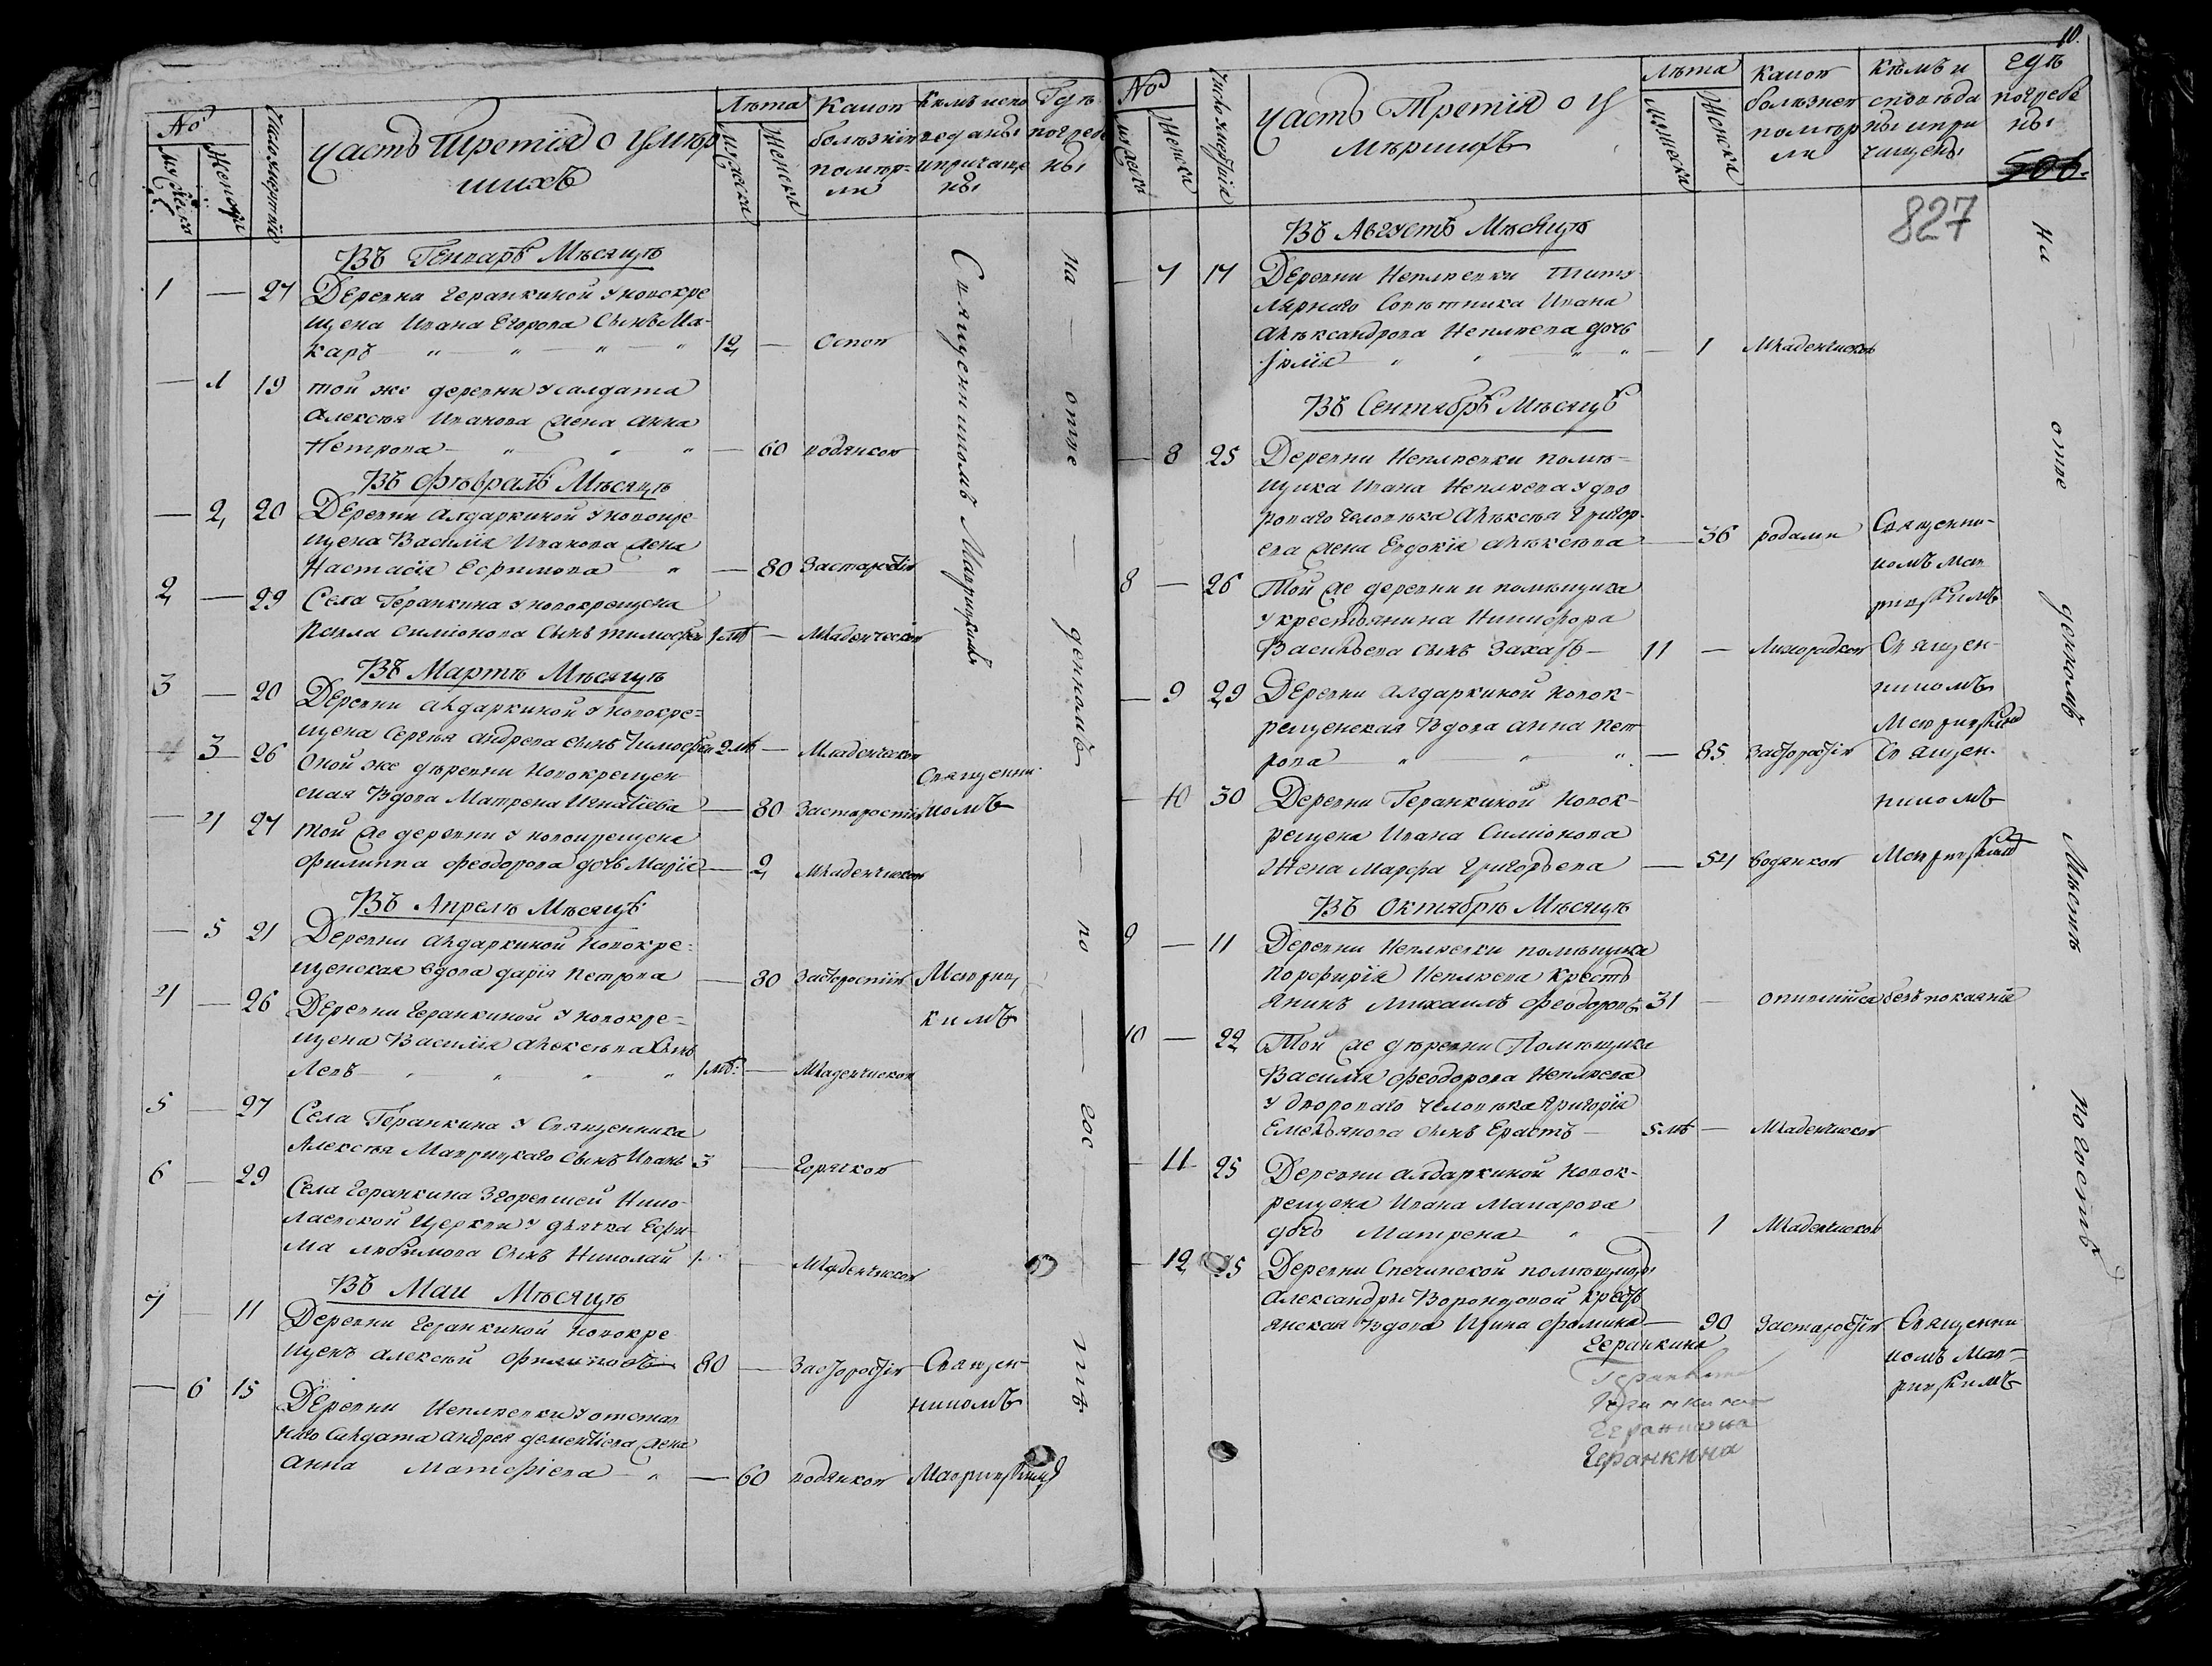 No
мужска
женска
число смертей
часть Третія о умер
шихъ
Лѣта
мужска
женска
Какою
болѣзнію
помер-
ли
Кѣмъ испо
веданы
и причаще
ны
Гдѣ
погребе
ны
Въ Генварѣ Мѣсяцѣ
1 — 27 Деревни Геранкиной у новокре
щена Ивана Егорова сынъ Ма-
каръ 12 — оспою
— 1 19 той же деревни у салдата
Алексѣя Иванова жена Анна
Петрова — 60 водяною
Въ Февралѣ Мѣсяцѣ
— 2 20 Деревни Алдаркиной у новокре
щена Василія Иванова жена
Настасія Ефимова — 80 Застаростію
2 — 29 Села Геранкина у новокрещена
Павла Симіонова сынъ Тимофей 1 лѣ — Младенческою
Въ Мартѣ Мѣсяцѣ
3 — 20 Деревни Алдаркиной у новокре=
щена Сергѣя Андреева сынъ Тимофей 2 лѣ — Младенческою
— 3 26 Оной же деревни новокрещен
ская вдова Матрена Игнатіева — 80 Застаростію
— 4 27 той же деревни у новокрещена
Филиппа Феодорова дочь Марія — 2 Младенческою
Въ Апрелѣ Мѣсяцѣ
— 5 21 Деревни Алдаркиной новокре-
щенская вдова Дарія Петрова — 80 Застаростію
4 — 26 Деревни Геранкиной у новокре=
щена Василія Алексѣева сынъ
Левъ 1 лѣ — Младенческою
5 — 27 Села Геранкина у Священника
Алексѣя Мавритскаго сынъ Иванъ 3 — Горячкою
6 — 29 Села Геранкина Згоревшей Нико-
лаевской Церкви у дьячка Ефи-
ма Любимова сынъ Николай 1 — Младенческою
Въ Маи Мѣсяцѣ
7 — 11 Деревни Геранкиной новокре
щенъ Алексѣй Филиповъ 80 — Застаростію
— 6 15 Деревни Неплюевки у отстав
наго салдата Андрея Дементіева жена
Анна Матвѣева — 60 водяною
Священникомъ Мавритскимъ
Священни
комъ
Мавритс
кимъ
Священ
никомъ
Мавритскимъ
на — отве — денномъ — по — гос — тѣ
10.
No
мужска
женска
число смертей
часть Третія о у
мершихъ
Лѣта
мужеска
женска
Какою
болѣзнею
помер
ли
Кѣмъ и
споведа
ны и при
чащены
Гдѣ
погребе
ны
827
Въ Августѣ Мѣсяцѣ
— 7 17 Деревни Неплюевки титу
лярнаго Советника Ивана
Александрова Неплюева дочь
Юлія — 1 Младенческою
Въ Сентябрѣ Мѣсяцѣ
— 8 25 Деревни Неплюевки помѣ-
щика Ивана Неплюева у дво
роваго человѣка Алексѣя Григор-
ева жена Евдокія Алексѣева — 36 родами Священни-
комъ Мав
ритскимъ
8 — 26 Той же деревни и помѣщика
у крестьянина Никифора
Васильева сынъ Захаръ — 11 — Лихорадкою Священ-
никомъ
Мавритскимъ
— 9 29 Деревни Алдаркиной новок-
рещенская вдова Анна Пет
рова — 85 Застаростію Священ-
никомъ
— 10 30 Деревни Геранкиной новок-
рещена Ивана Симіонова
Жена Марфа Григорьева — 54 водяною Мавритскимъ
Въ Октябрѣ Мѣсяцѣ
9 — 11 Деревни Неплюевки помѣщика
Порфирія Неплюева крестъ
янинъ Михаилъ Феодоровъ 31 — опившійся безъ покаянія
10 — 22 Той же деревни Помѣщика
Василія Феодорова Неплюева
у двороваго человѣка Григорія
Емельянова сынъ Ерастъ — 5 лѣ — Младенческою
— 11 25 Деревни Алдаркиной новок-
рещена Ивана Макарова
дочь Матрена — 1 Младенческою
— 12 25 Деревни Спечинской помѣщицы
Александры Воронцовой крест
янская вдова Ирина Фомина — 90 Застаростію Священни
комъ Мав=
ритскимъ
Геранкина
Геранкина
Геранкина
на — отве денномъ Мѣстѣ погостѣ